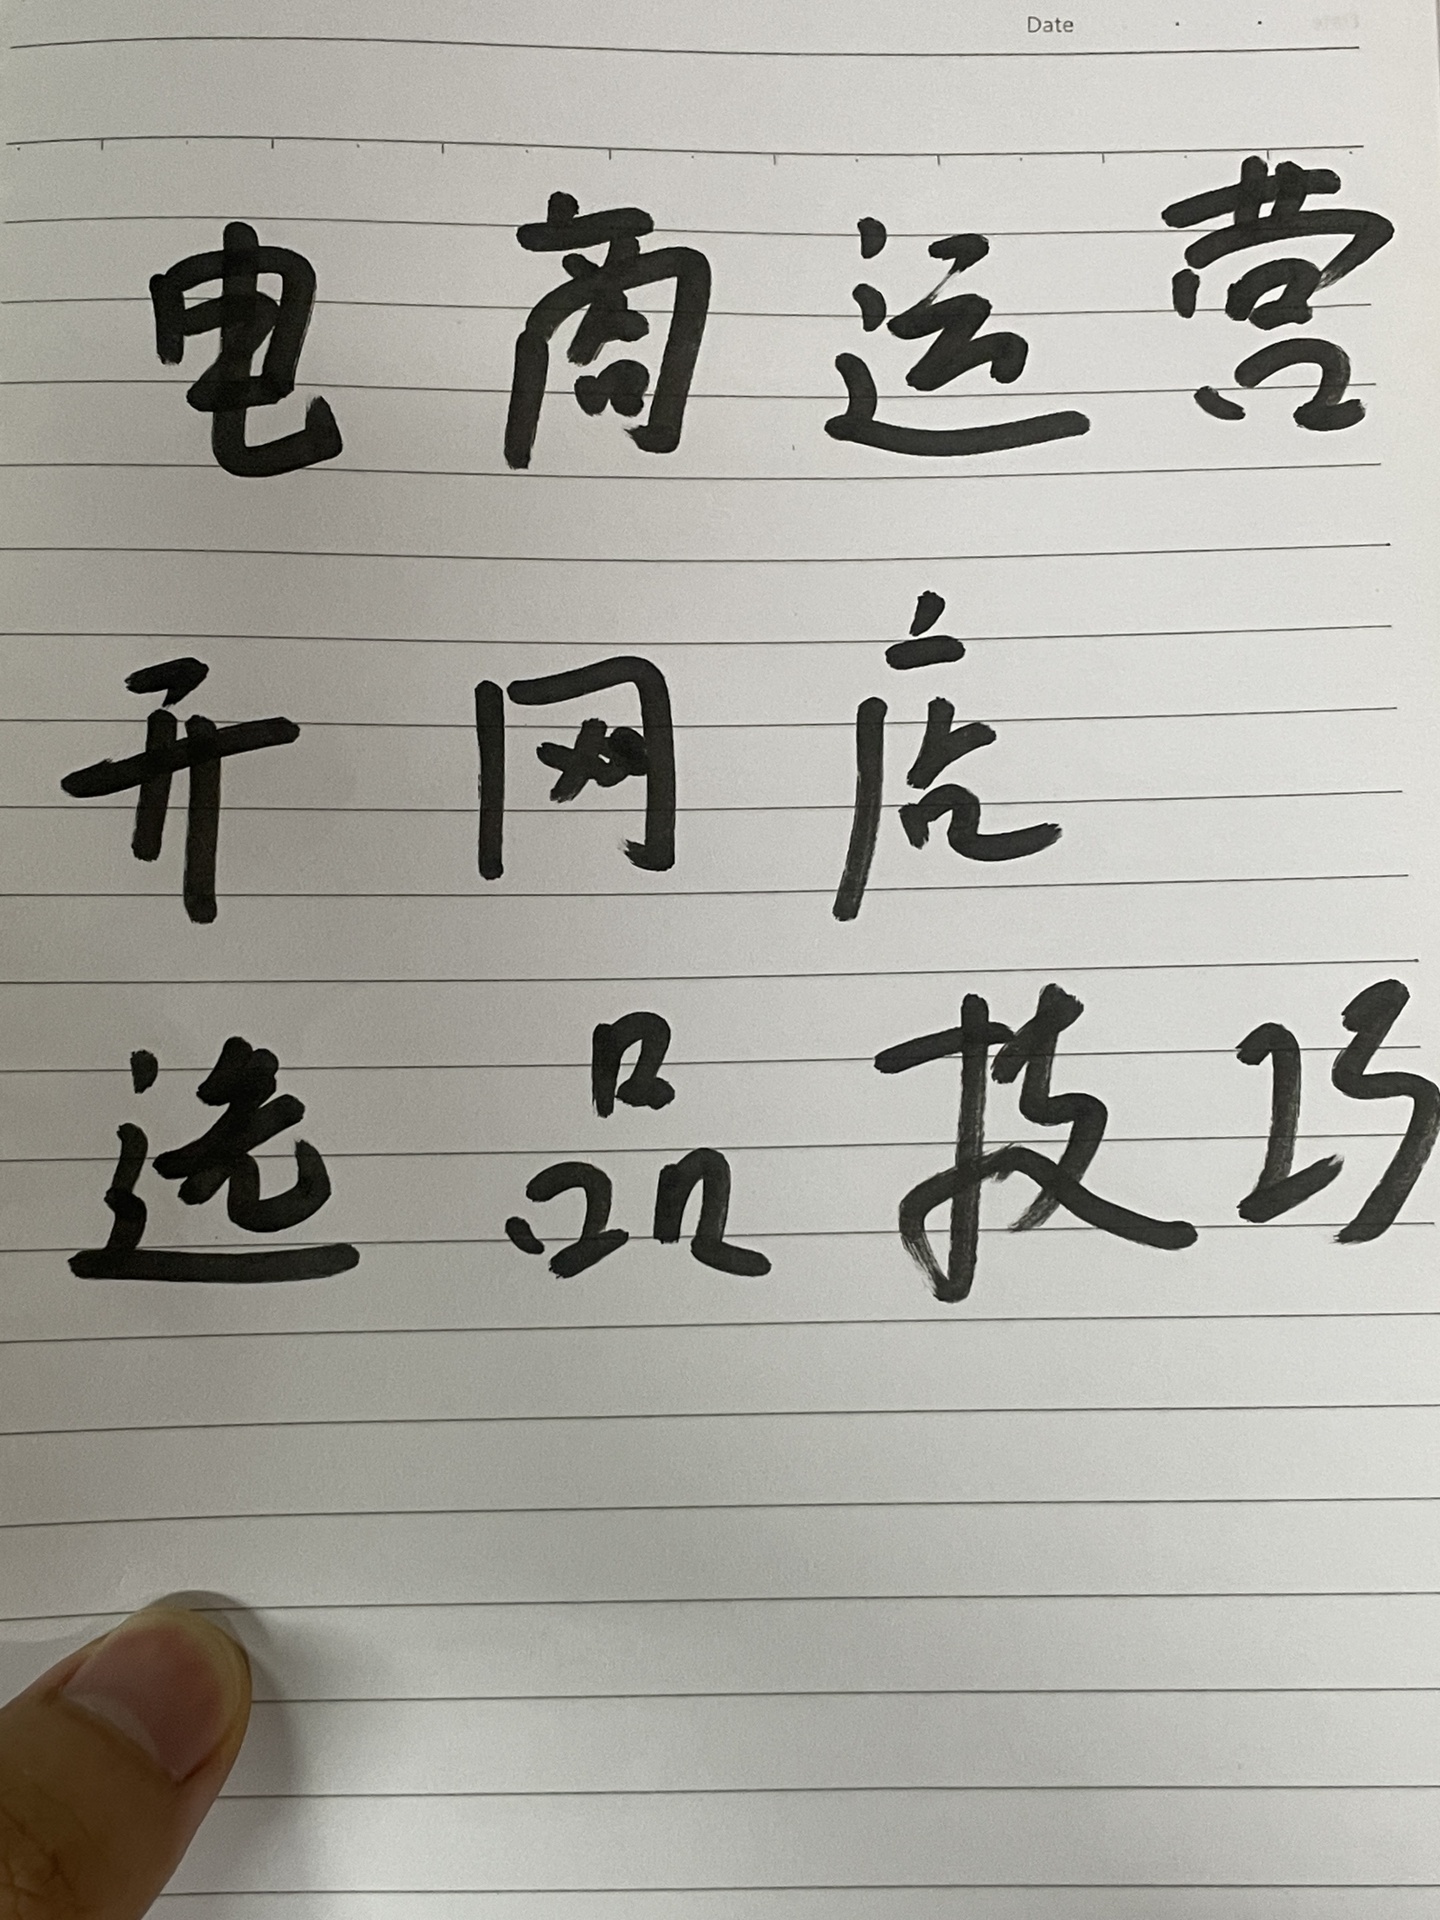 Date
电商运营
开网店
选品技巧